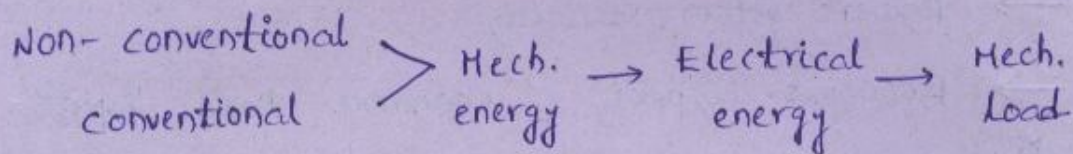 Non- conventional
conventional
> Mech. energy → Electrical energy → Mech. Load